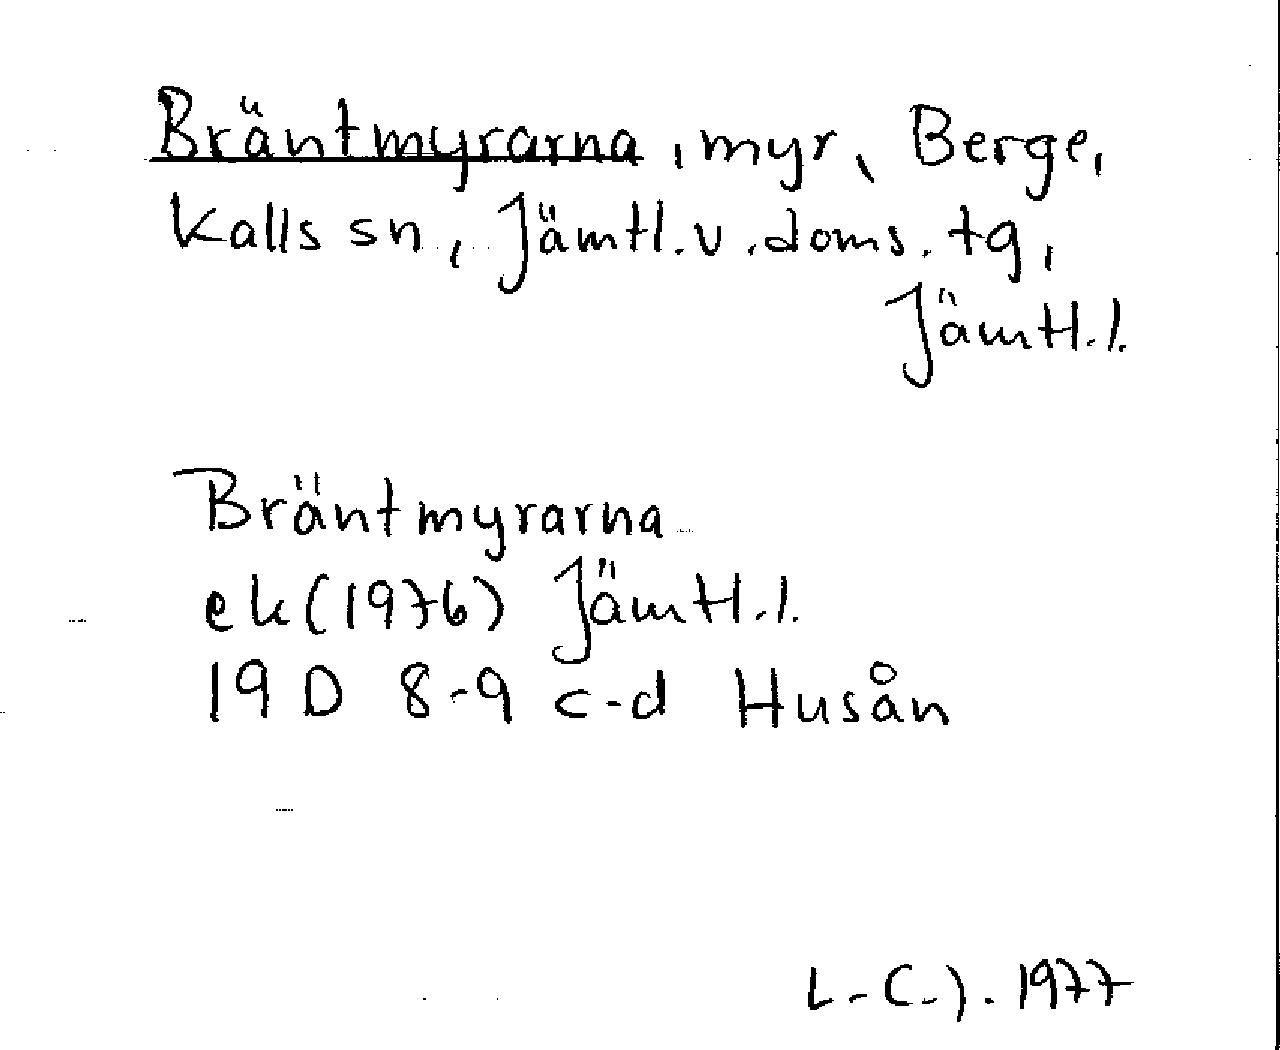 Bräntmyrarna, myr, Berge,
Kalls sn, Jämtl. v. doms. tg,
Jämtl. l.
Bräntmyrarna
ek (1976) Jämtl. l.
19 D 8-9 c-d Husån
L-C-J. 1977